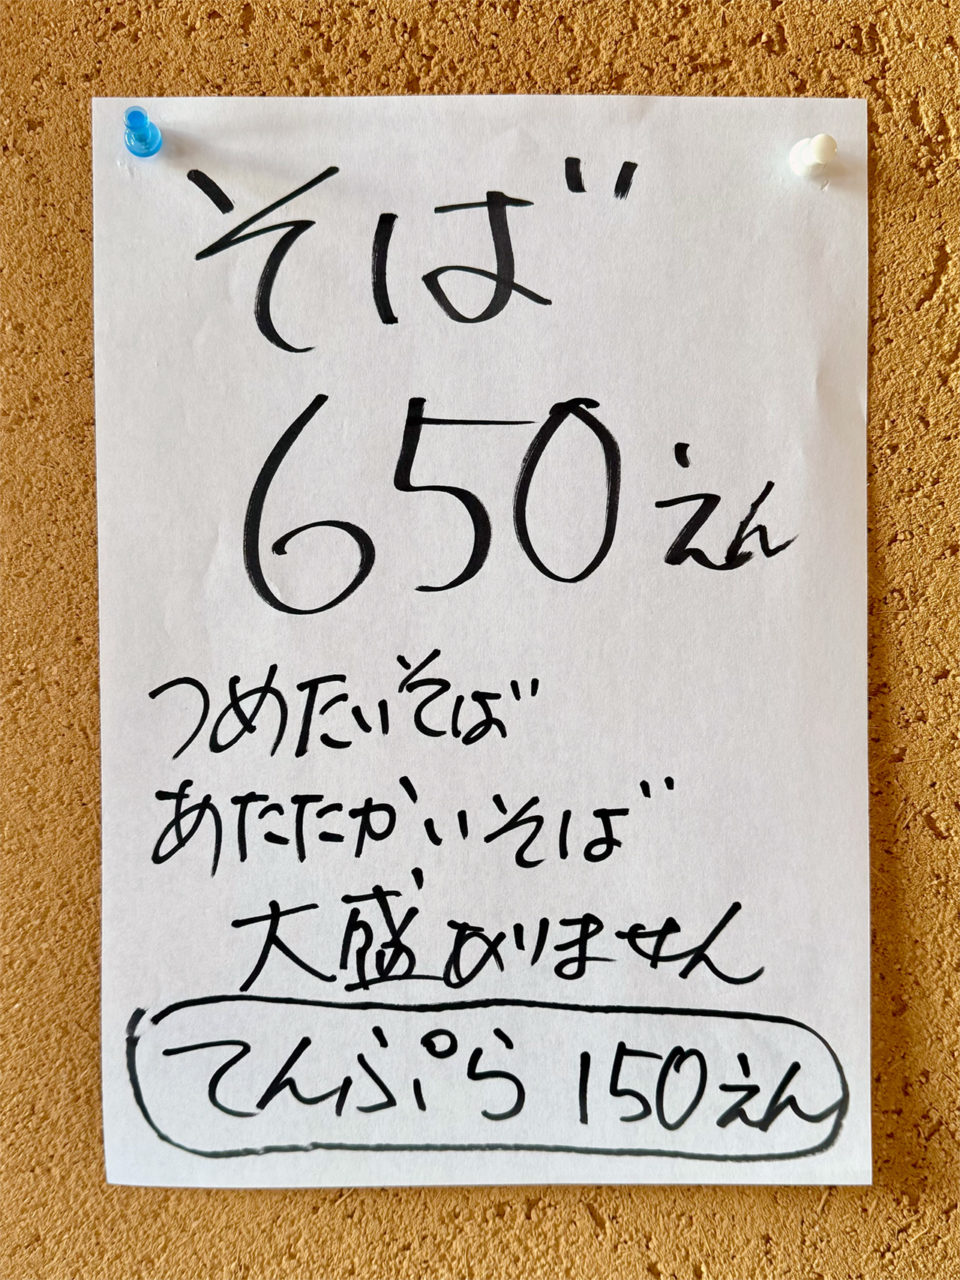 そば
650えん
つめたいそば
あたたかいそば
大盛ありません
てんぷら 150えん